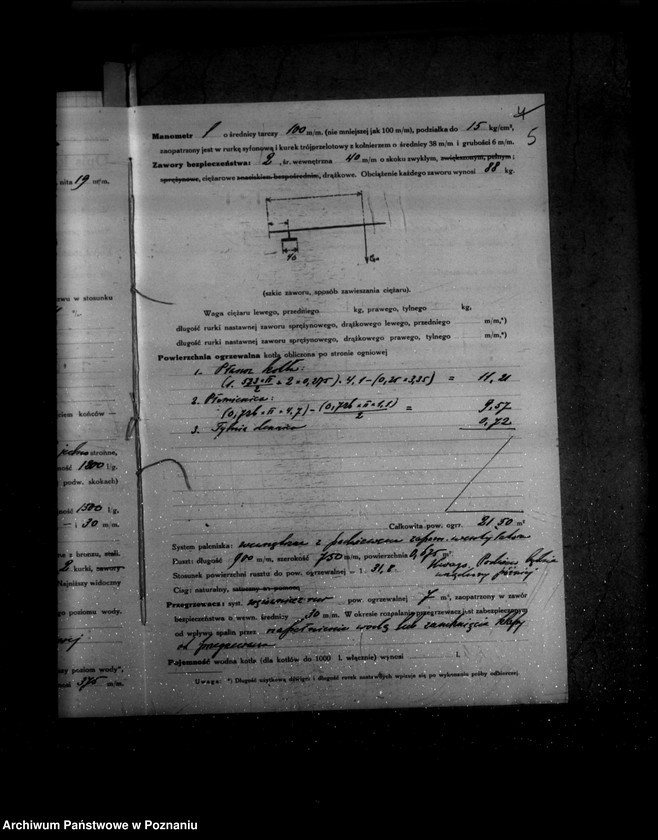 5
Manometr 1 o średnicy tarczy 100 m/m. (nie mniejszej jak 100 m/m), podziałka do 15 kg/cm²,
zaopatrzony jest w rurkę syfonową i kurek trójprzelotowy z kołnierzem o średnicy 38 m/m i grubości 6 m/m.
Zawory bezpieczeństwa: 2, śr. wewnętrzna 40 m/m o skoku zwykłym, zwiększonym, pełnym;
sprężynowe, ciężarowe znaciskiem bezpośrednim, drążkowe. Obciążenie każdego zaworu wynosi 88 kg.
(szkic zaworu, sposób zawieszania ciężaru).
Waga ciężaru lewego, przedniego kg, prawego, tylnego kg,
długość rurki nastawnej zaworu sprężynowego, drążkowego lewego, przedniego m/m,*)
długość rurki nastawnej zaworu sprężynowego, drążkowego prawego, tylnego m/m,*)
Powierzchnia ogrzewalna kotła obliczona po stronie ogniowej
1. Płaszcz kotła:
= 11,21
2. Płomienica:
= 9,57
3. Tylnie 0,72
Całkowita pow. ogrz. 21,50 m²
System paleniska: wewnętrzne z
Ruszt: długość 900 m/m, szerokość 750 m/m, powierzchnia 0,675 m²
Stosunek powierzchni rusztu do pow. ogrzewalnej = 1: 31,8
Uwaga
później
Ciąg: naturalny,
Przegrzewacz: syst. pow. ogrzewalnej 7 m², zaopatrzony w zawór
bezpieczeństwa o wewn. średnicy: 30 m/m. W okresie rozpalania przegrzewacz jest zabezpieczony
od wpływu spalin przez napełnienie wodą lub zamknięcie klapy
Pojemność wodna kotła (dla kotłów do 1000 l. włącznie) wynosi l.
Uwaga: *) Długość użytkową dźwigni i długość rurek nastawnych wpisuje się po wykonaniu próby odbiorczej
nita 19 m/m.
owu w stosunku
ciem końców —
strone,
ność 1800 l/g.
podw. skokach)
ność 1500 l/g.
— i 30 m/m.
na z bronzu, stali.
2 kurki, zawory
Najniższy widoczny
go poziomu wody.
szy poziom wody",
nosi 375 m/m.
Archiwum Państwowe w Poznaniu